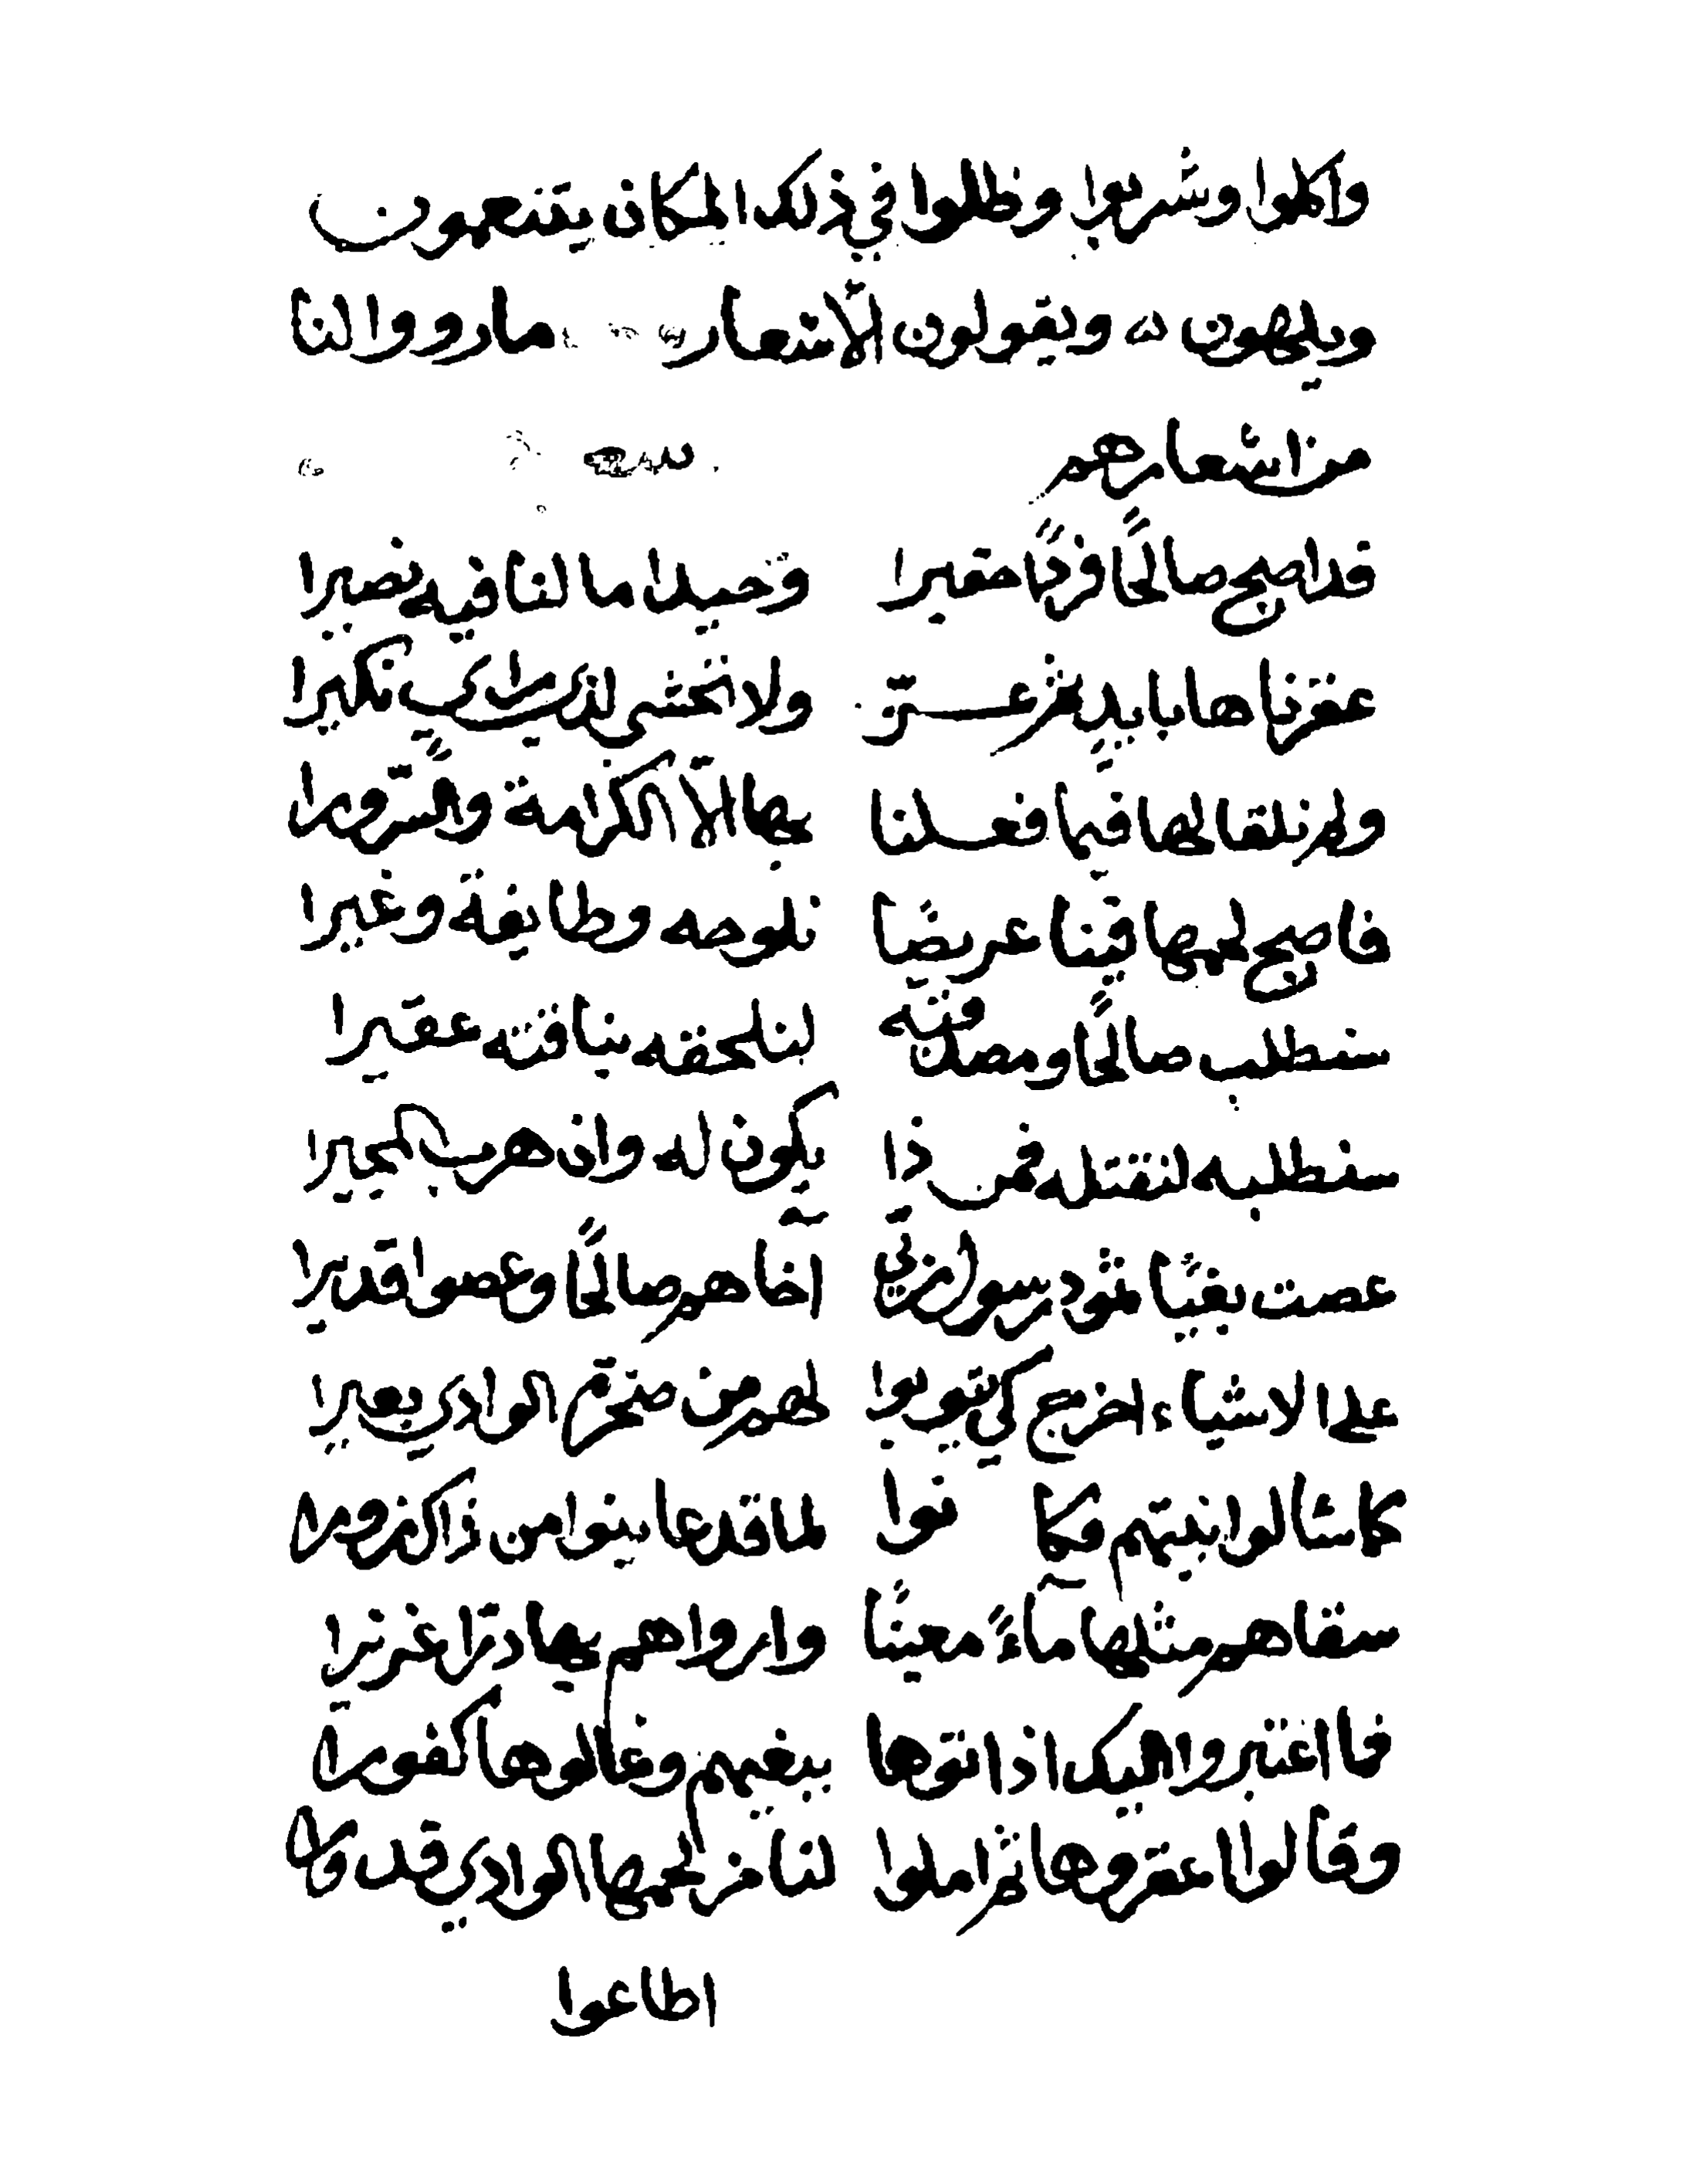 واكلوا وشربوا وظلوا في ذلك المكان يتنعمون
ويلهون ه ويقولون الأشعار مارووا لنا
من اشعارهم
قد اصبح صالحًا فردًا حقيرا وحيدا ما لنا فيه نصيرا
عقرناها بايدٍ ولا نخشى لذي نكيرا
ولم نلقا لها فيما فعلنا بها الاّ الكرامة والسّرورا
فاصبح لحمها فينا عريضًا نلوحه وطايفة وغيرا
سنطلب صالحًا ومصدقيه لنلحقه بناقته عقيرا
سنطلبه لنقتله فمن ذا يكون له وان هرب المجيرا
عصت بغيًا ثمود رسول ربّي اخاهم صالحًا وعصوا قديرا
على الاشياء اخرج كي يتوبوا لهم من صخرة الوادي بعيرا
كما سالوا نبيّهم فكانوا لما قد عاينوا من ذاك زورا
سقاهم مثلها مآءً معينًا وارواهم بها درّا غزيرا
فما اعتبروا بتيك اذا اتوها ببغيهم وغالوها كفورا
وقالوا اعقروها ثم املوا لنا من لحمها الوادي قدورا
اطاعوا